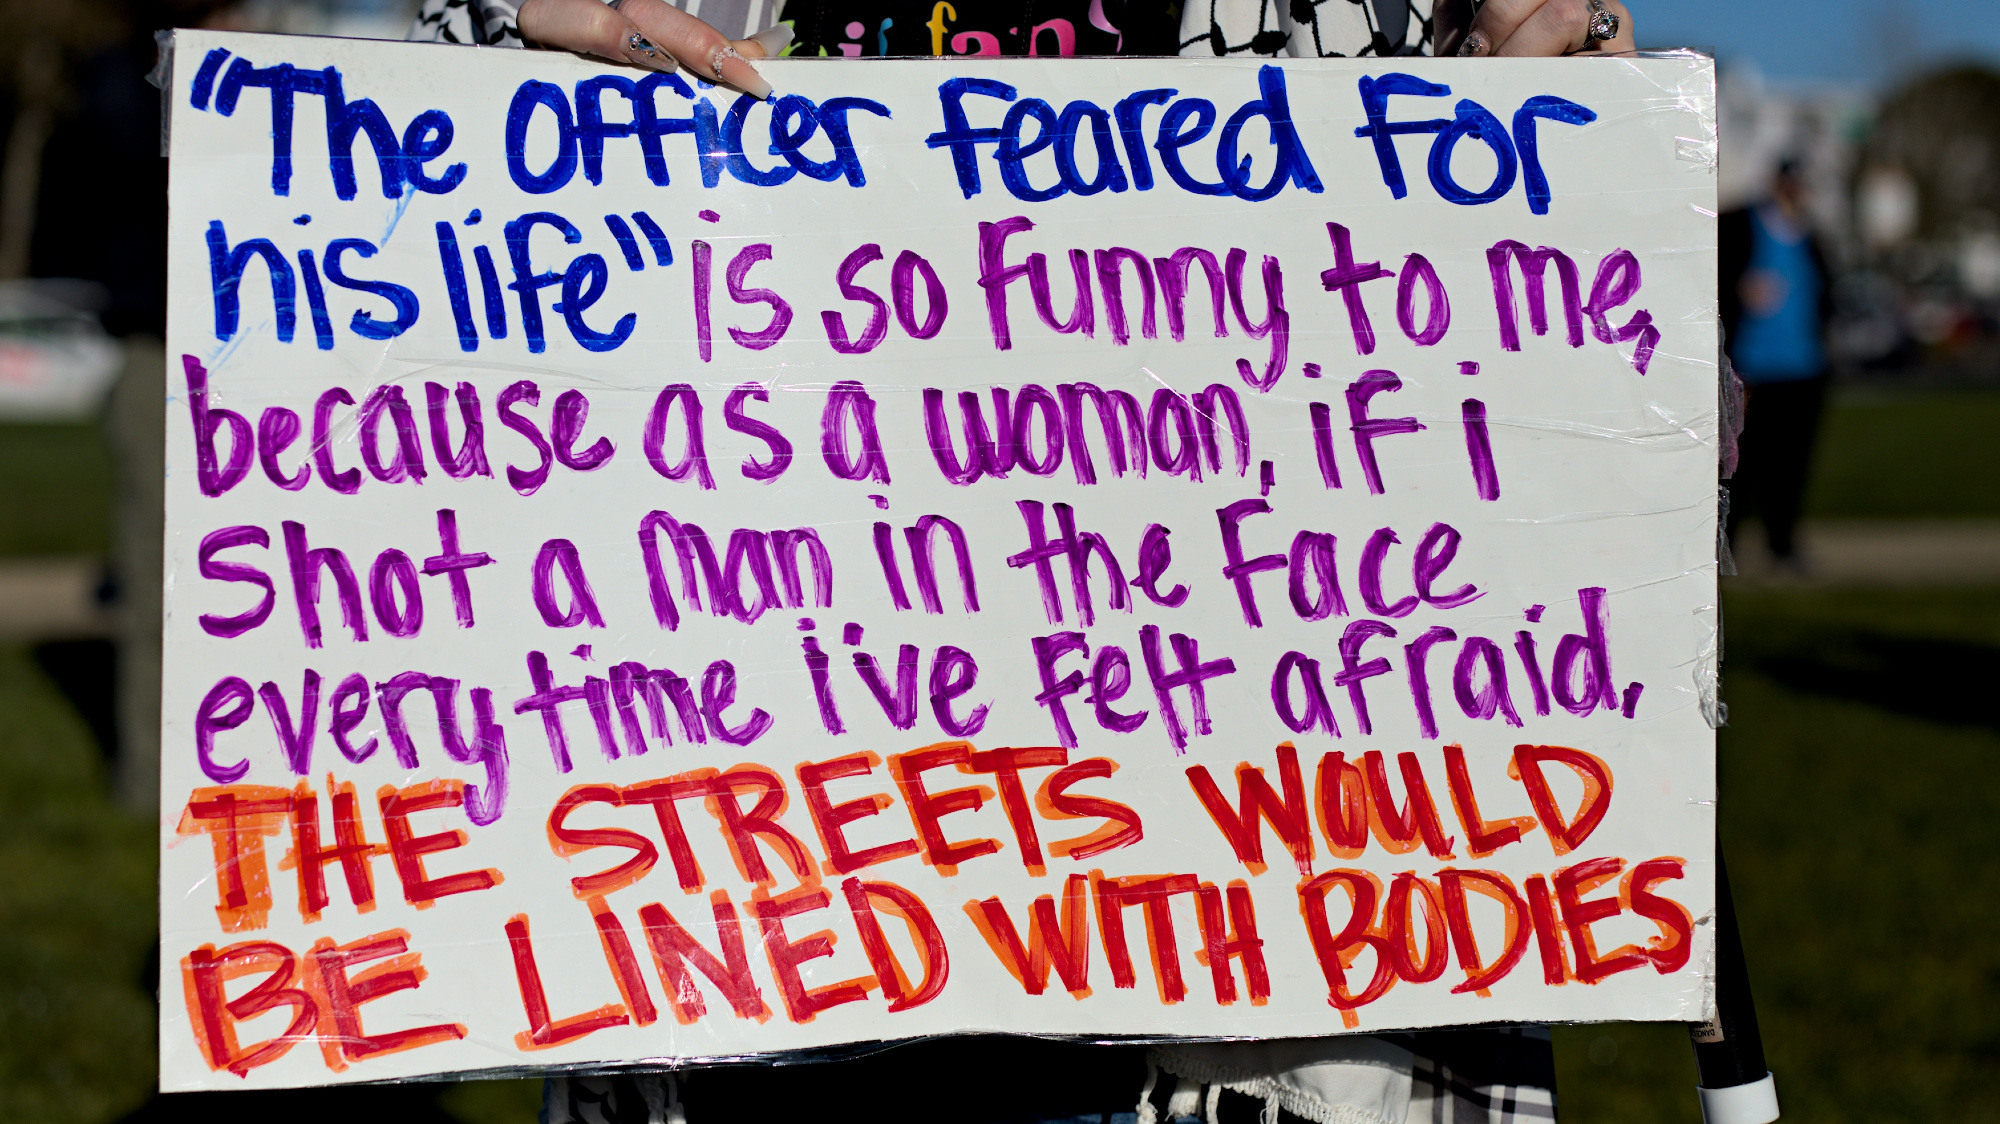 "The officer feared for
his life" is so funny to me,
because as a woman, if i
shot a man in the face
every time i've felt afraid,
THE STREETS WOULD
BE LINED WITH BODIES